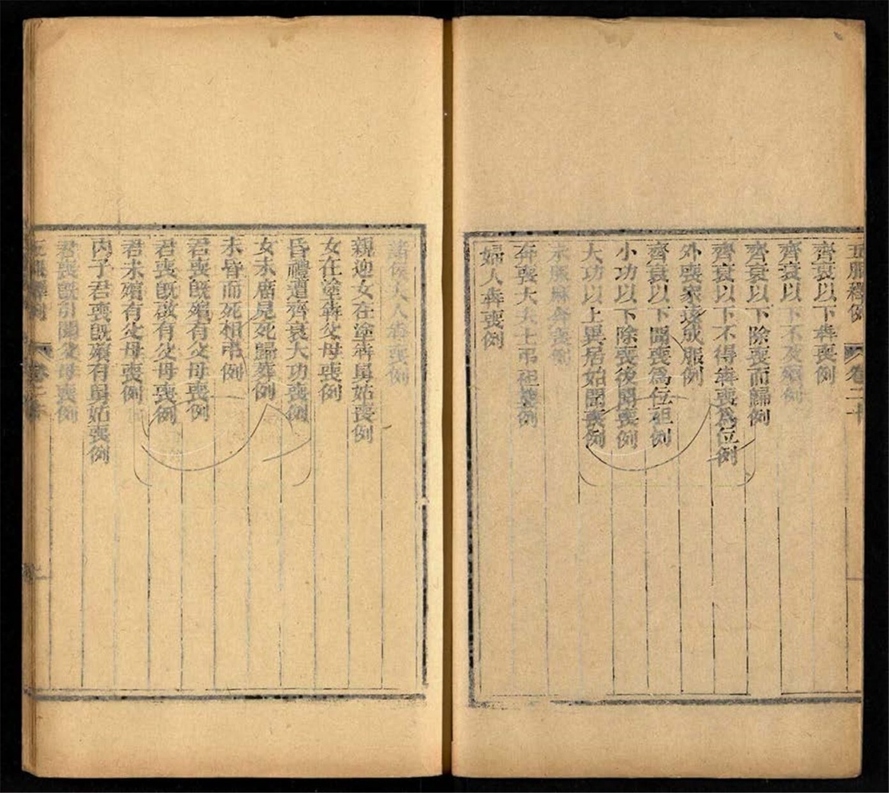 五服釋例 卷二十
齊衰以下奔喪例
齊衰以下不及殯例
齊衰以下除喪而歸例
齊衰以下不得奔喪爲位例
外喪家遠成服例
齊衰以下聞喪爲位袒例
小功以下除喪後聞喪例
大功以上異居始聞喪例
未服麻奔喪例
奔喪大夫士弔袒襲例
婦人奔喪例
諸侯夫人奔喪例
親迎女在塗奔舅姑喪例
女在塗奔父母喪例
昏禮遭齊衰大功喪例
女未廟見死歸葬例
未昏而死相弔例
君喪旣殯有父母喪例
君喪旣啟有父母喪例
君未殯有父母喪例
內子君喪旣殯有舅姑喪例
君喪旣引聞父母喪例
五服釋例 卷二十